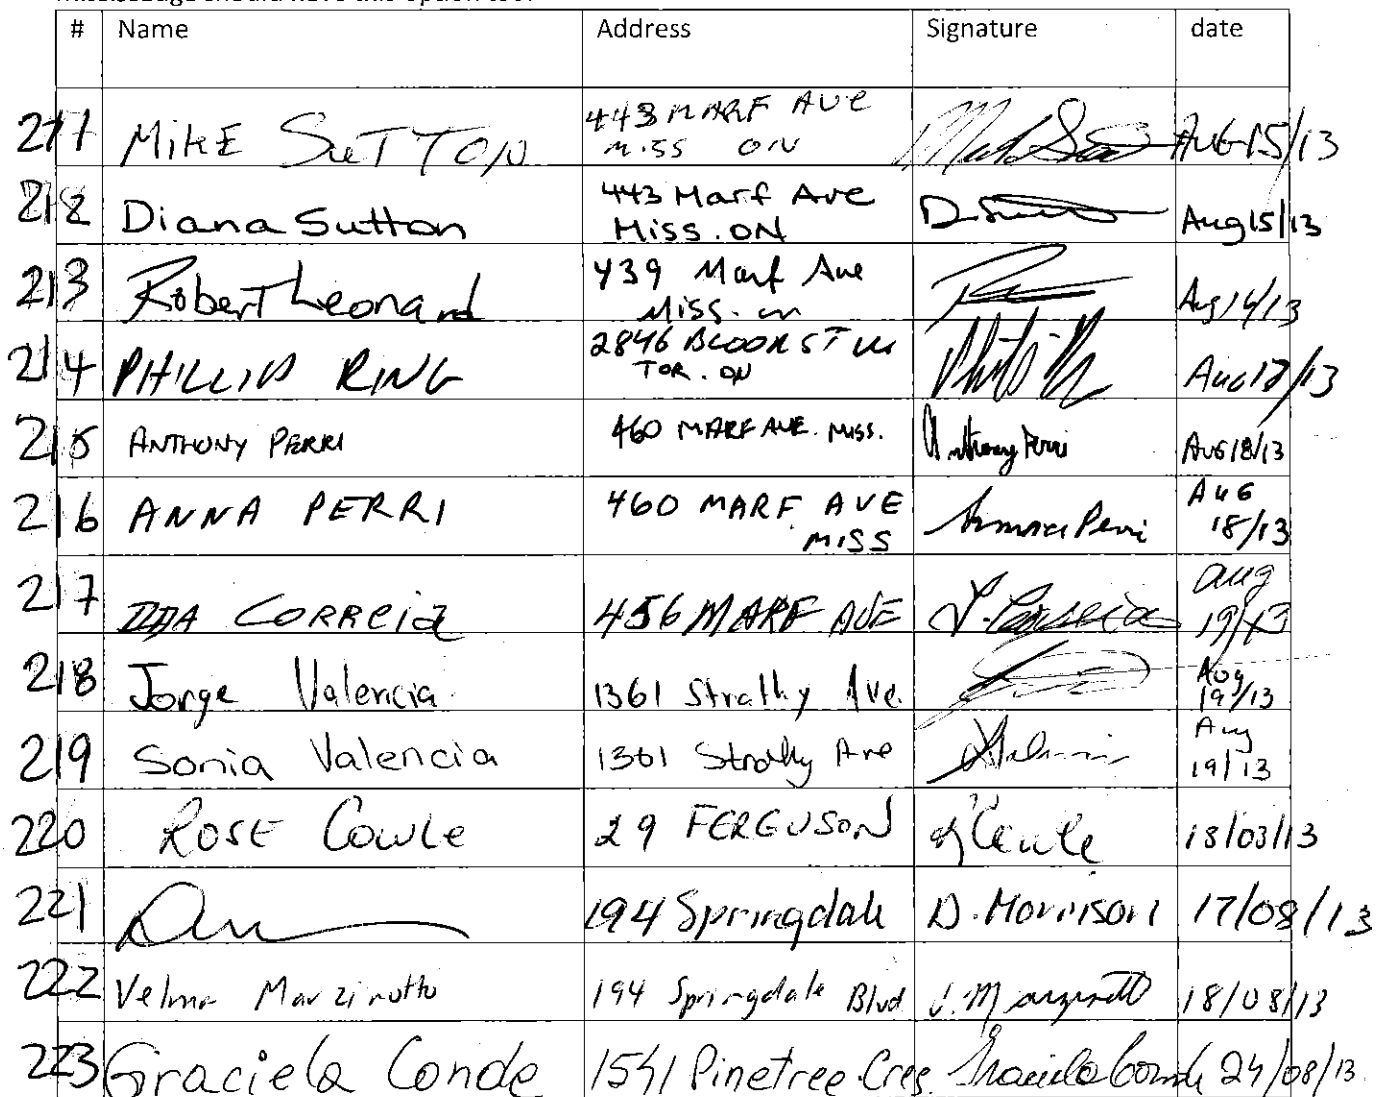 # Name Address Signature date
211 MIKE SUTTON 443 MARF AVE MISS ON Aug 15/13
212 Diana Sutton 443 Marf Ave Miss. ON D. Sutton Aug 15/13
213 Robert Leonard 439 Marf Ave Miss. on Aug 14/13
214 PHILLIP RING 2846 BLOOR ST W TOR. ON Aug 17/13
215 ANTHONY PERRI 460 MARF AVE. MISS. Anthony Perri AUG 18/13
216 ANNA PERRI 460 MARF AVE MISS Anna Perri AUG 18/13
217 IDA CORREIA 456 MARF AVE I. Correia aug 19/13
218 Jorge Valencia 1361 Strathy Ave. Aug 19/13
219 Sonia Valencia 1361 Strathy Ave Aug 19/13
220 ROSE Cowle 29 FERGUSON R Cowle 18/03/13
221 194 Springdale D. Morrison 17/08/13
222 Velma Marzinotto 194 Springdale Blvd V. Marzinotto 18/08/13
223 Graciela Conde 1541 Pinetree Cres. Graciela Conde 24/08/13